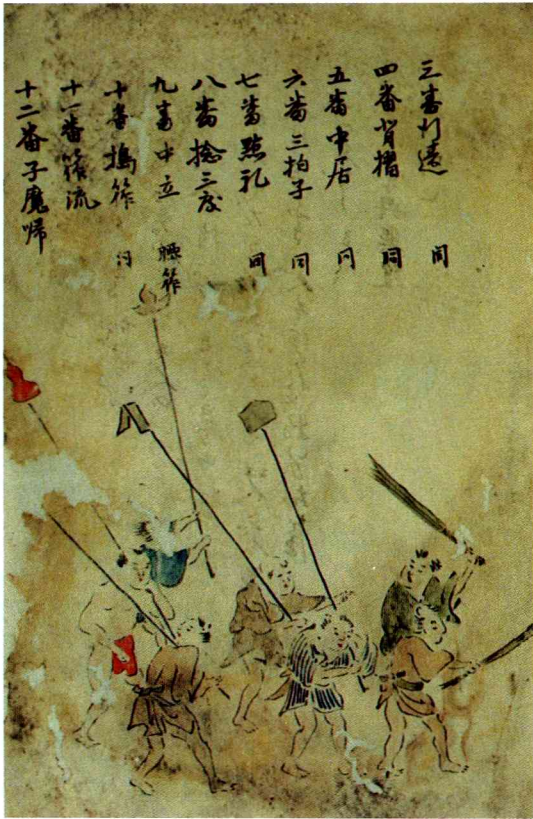 三番打違 同
四番背摺 同
五番中居 同
六番三拍子 同
七番礼 同
八番捻三度
九番中立 腰筰
十番搗筰 同
十一番筰流
十二番子魔帰